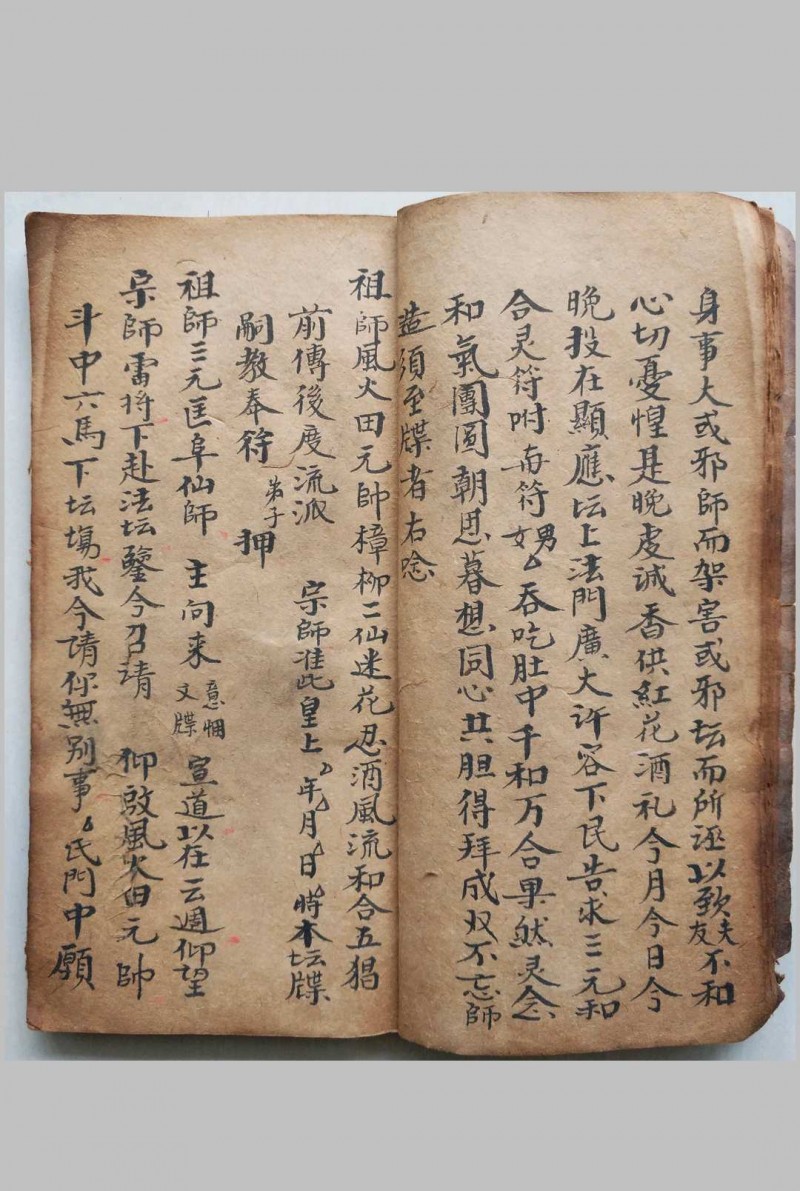 身事大或邪師而架害或邪坛而所诬以致夫友不和
心切憂惶是晚虔诚香供紅花酒礼今月今日今
晚投在顯應坛上法門廣大许容下民告求三元和
合灵符咐与符男女吞吃肚中千和万合果然灵念
和氣團圆朝思暮想同心共胆得拜成双不忘師
須至牒者右唸
祖師風火田元帥樟柳二仙迷花忍酒風流和合五猖
前傳後度流派 宗師准此皇上年月日時本坛牒
嗣教奉符弟子押
祖師三元匡阜仙師 主向来意悃文牒宣道以在云週仰望
宗師雷将下赴法坛鑒今召請 仰啟風火田元帥
斗中六馬下坛塲我今請你無别事氏門中願